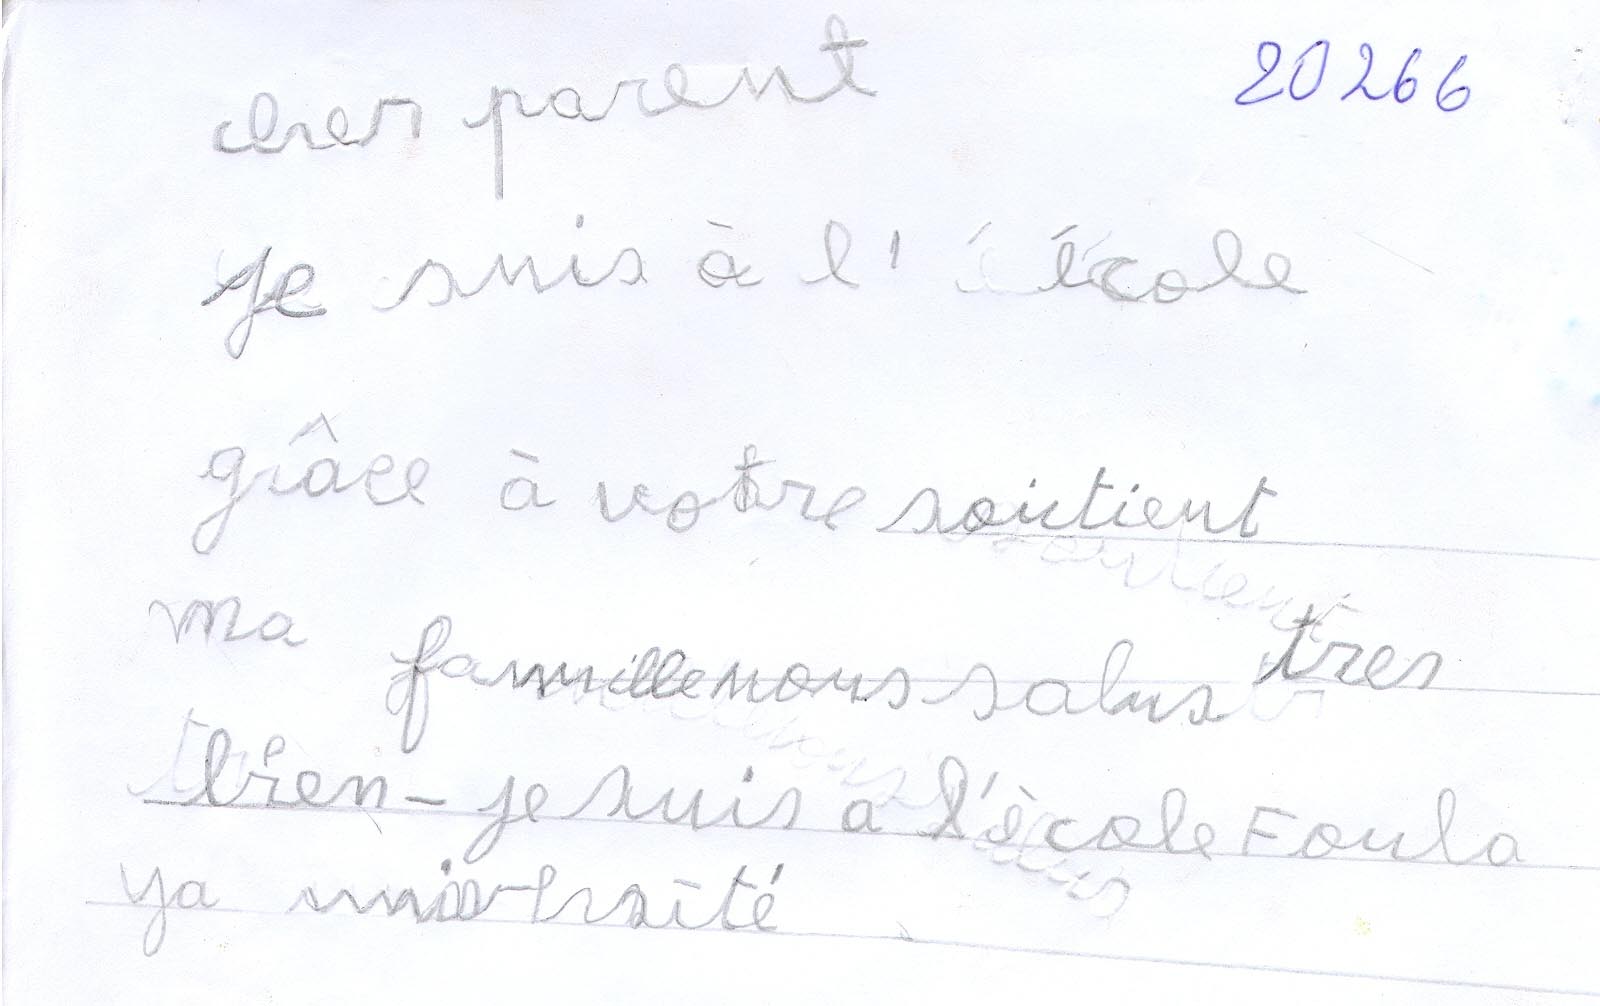 20266
cher parent
je suis à l' école
grâce à votre soutient
ma famille nous salus tres
bien - je suis a l'école Foula
ya